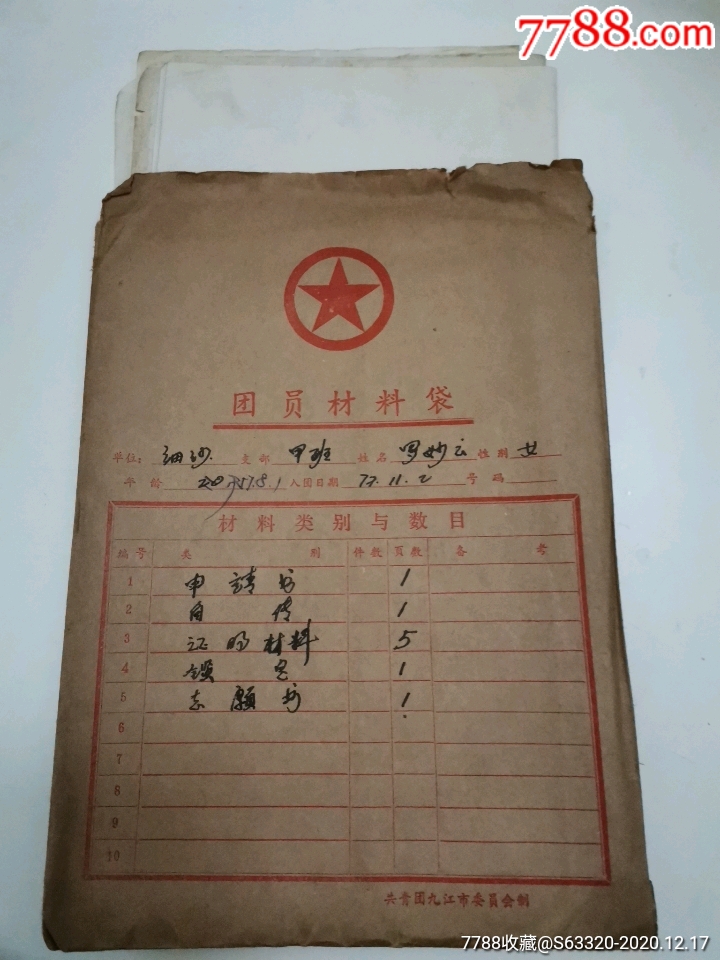 7788.com
团员材料袋
单位: 细沙 支部 甲班 姓名 罗妙云 性别 女
年龄 57.8.1 入团日期 77.11.2 号码
材料类别与数目
编号 类别 件数 页数 备考
1 申请书 1
2 自传 1
3 证明材料 5
4 1
5 志願书 1
6
7
8
9
10
共青团九江市委员会制
7788收藏@S63320-2020.12.17